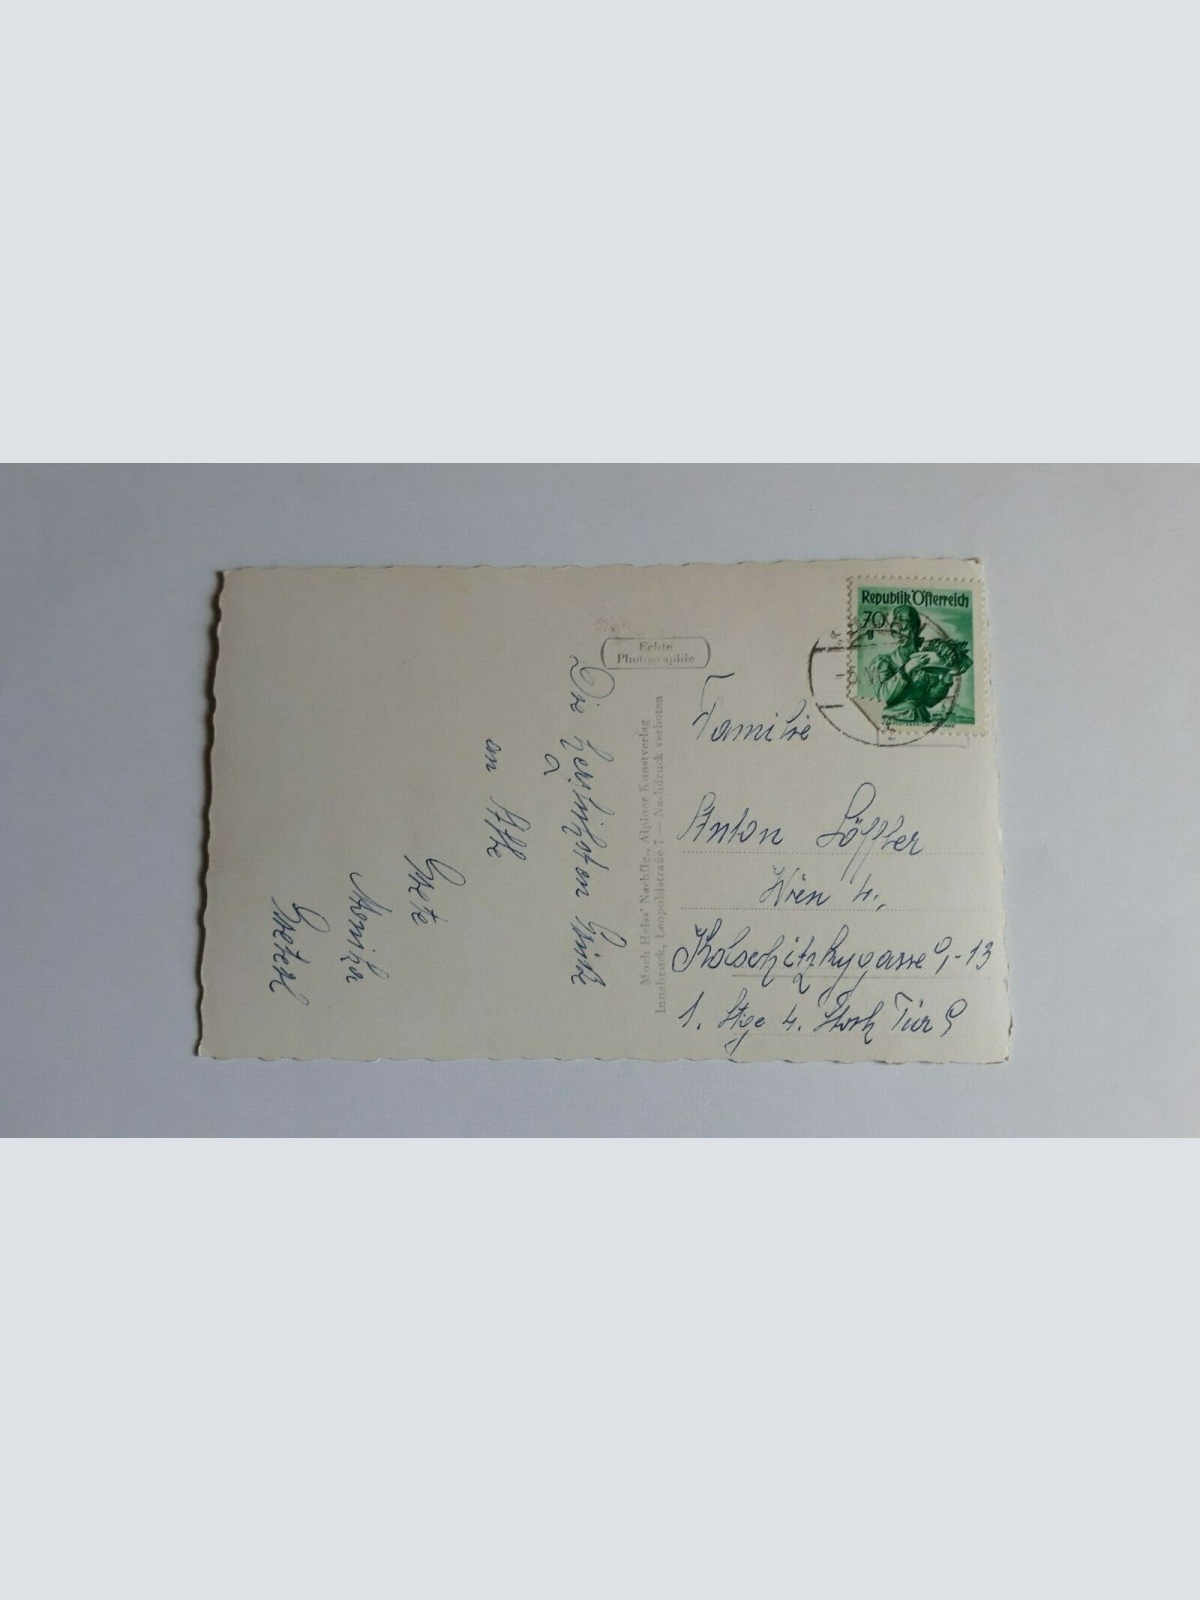 Republik Österreich
70
g
Echte
Photographie
Much Heiss' Nachflg., Alpiner Kunstverlag
Innsbruck, Leopoldstraße 7 — Nachdruck verboten
Familie
Anton Löffler
Wien 4.,
Kolschitzkygasse 9-13
1. Stge 4. Stock Tür 9
Die herzlichsten Grüße
an Alle
Grete
Monika
Greterl